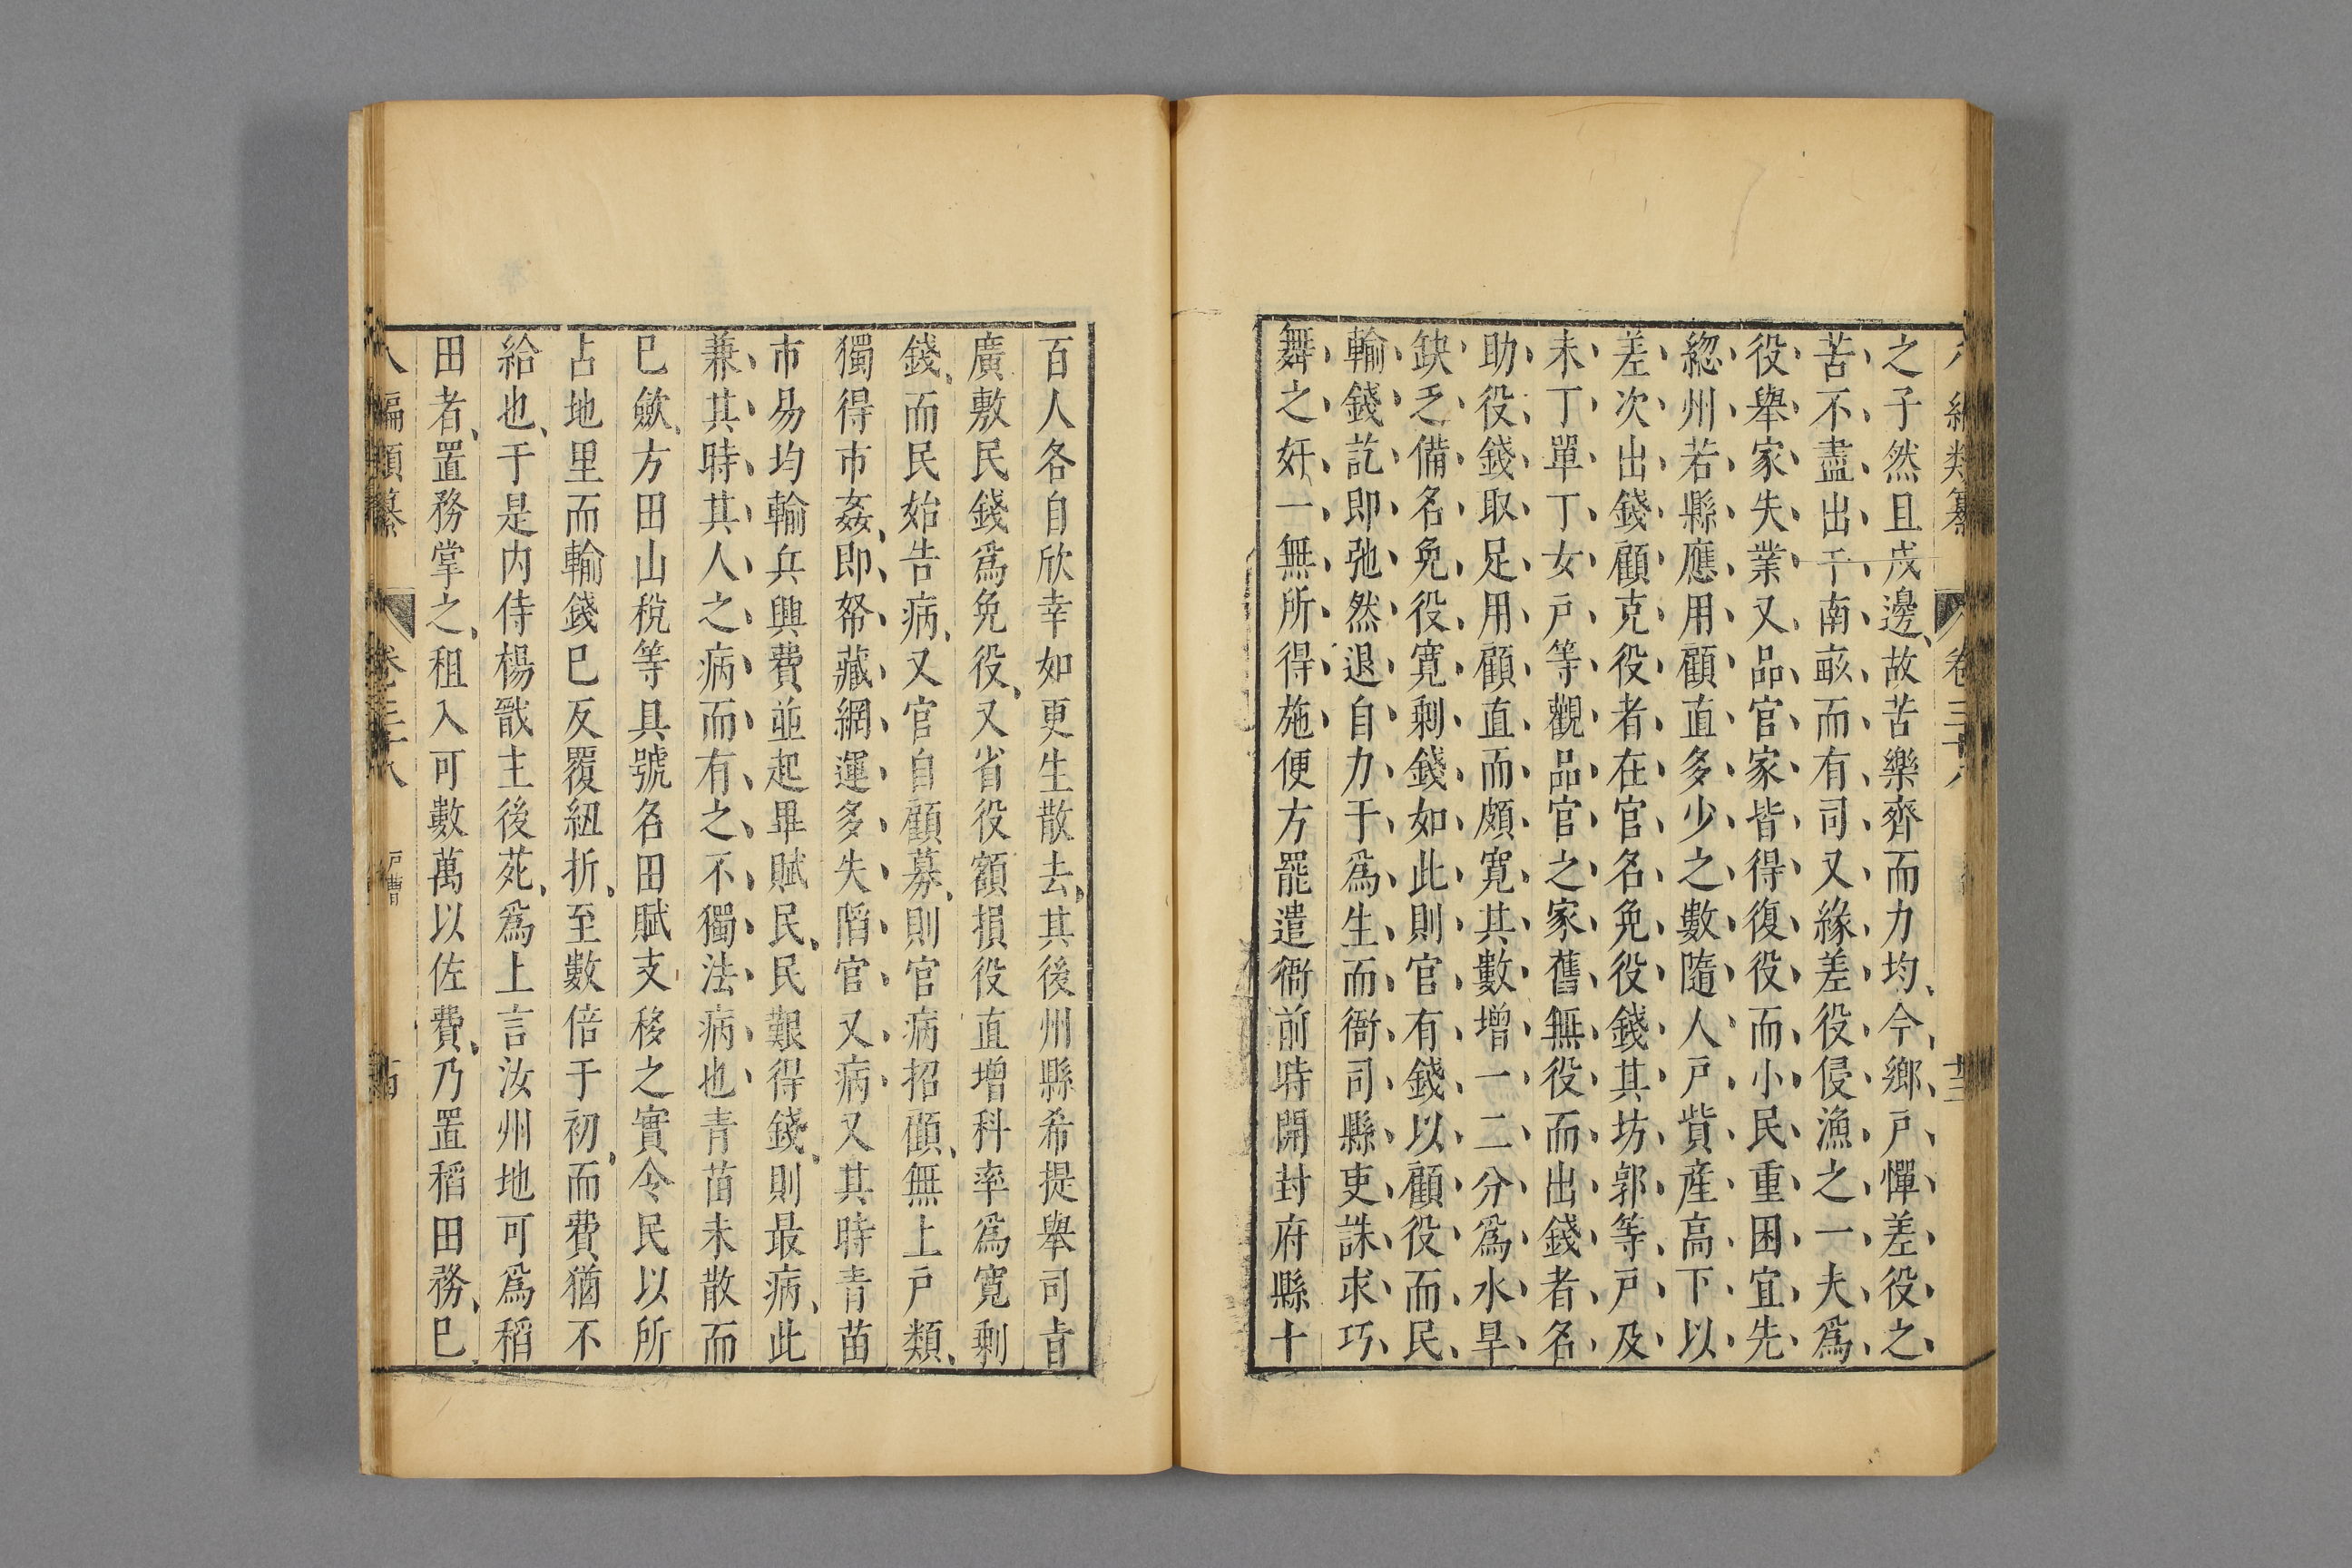 八編類纂 卷三十八 十三
之子然且戍邊故苦樂齊而力均今鄉戶憚差役之
苦不盡出于南畝而有司又緣差役侵漁之一夫爲
役舉家失業又品官家皆得復役而小民重困宜先
緫州若縣應用顧直多少之數隨人戶貲産高下以
差次出錢顧克役者在官名免役錢其坊郭等戶及
未丁單丁女戶等觀品官之家舊無役而出錢者名
助役錢取足用顧直而頗寛其數增一二分爲水旱
缺乏備名免役寛剩錢如此則官有錢以顧役而民
輸錢訖即弛然退自力于爲生而衙司縣吏誅求巧
舞之奸一無所得施便方罷遣衙前時開封府縣十
百人各自欣幸如更生散去其後州縣希提舉司㫖
廣敷民錢爲免役又省役額損役直增科率爲寛剩
錢而民始告病又官自顧募則官病招顧無上戶類
獨得市姦即帑藏網運多失陷官又病又其時青苗
市易均輸兵興費並起畢賦民民艱得錢則最病此
兼其時其人之病而有之不獨法病也青苗未散而
已斂方田山稅等具號名田賦支移之實令民以所
占地里而輸錢已反覆紐折至數倍于初而費猶不
給也于是内侍楊戩主後苑爲上言汝州地可爲稻
田者置務掌之租入可數萬以佐費乃置稻田務已
八編類纂 卷三十八 戶曹 十四